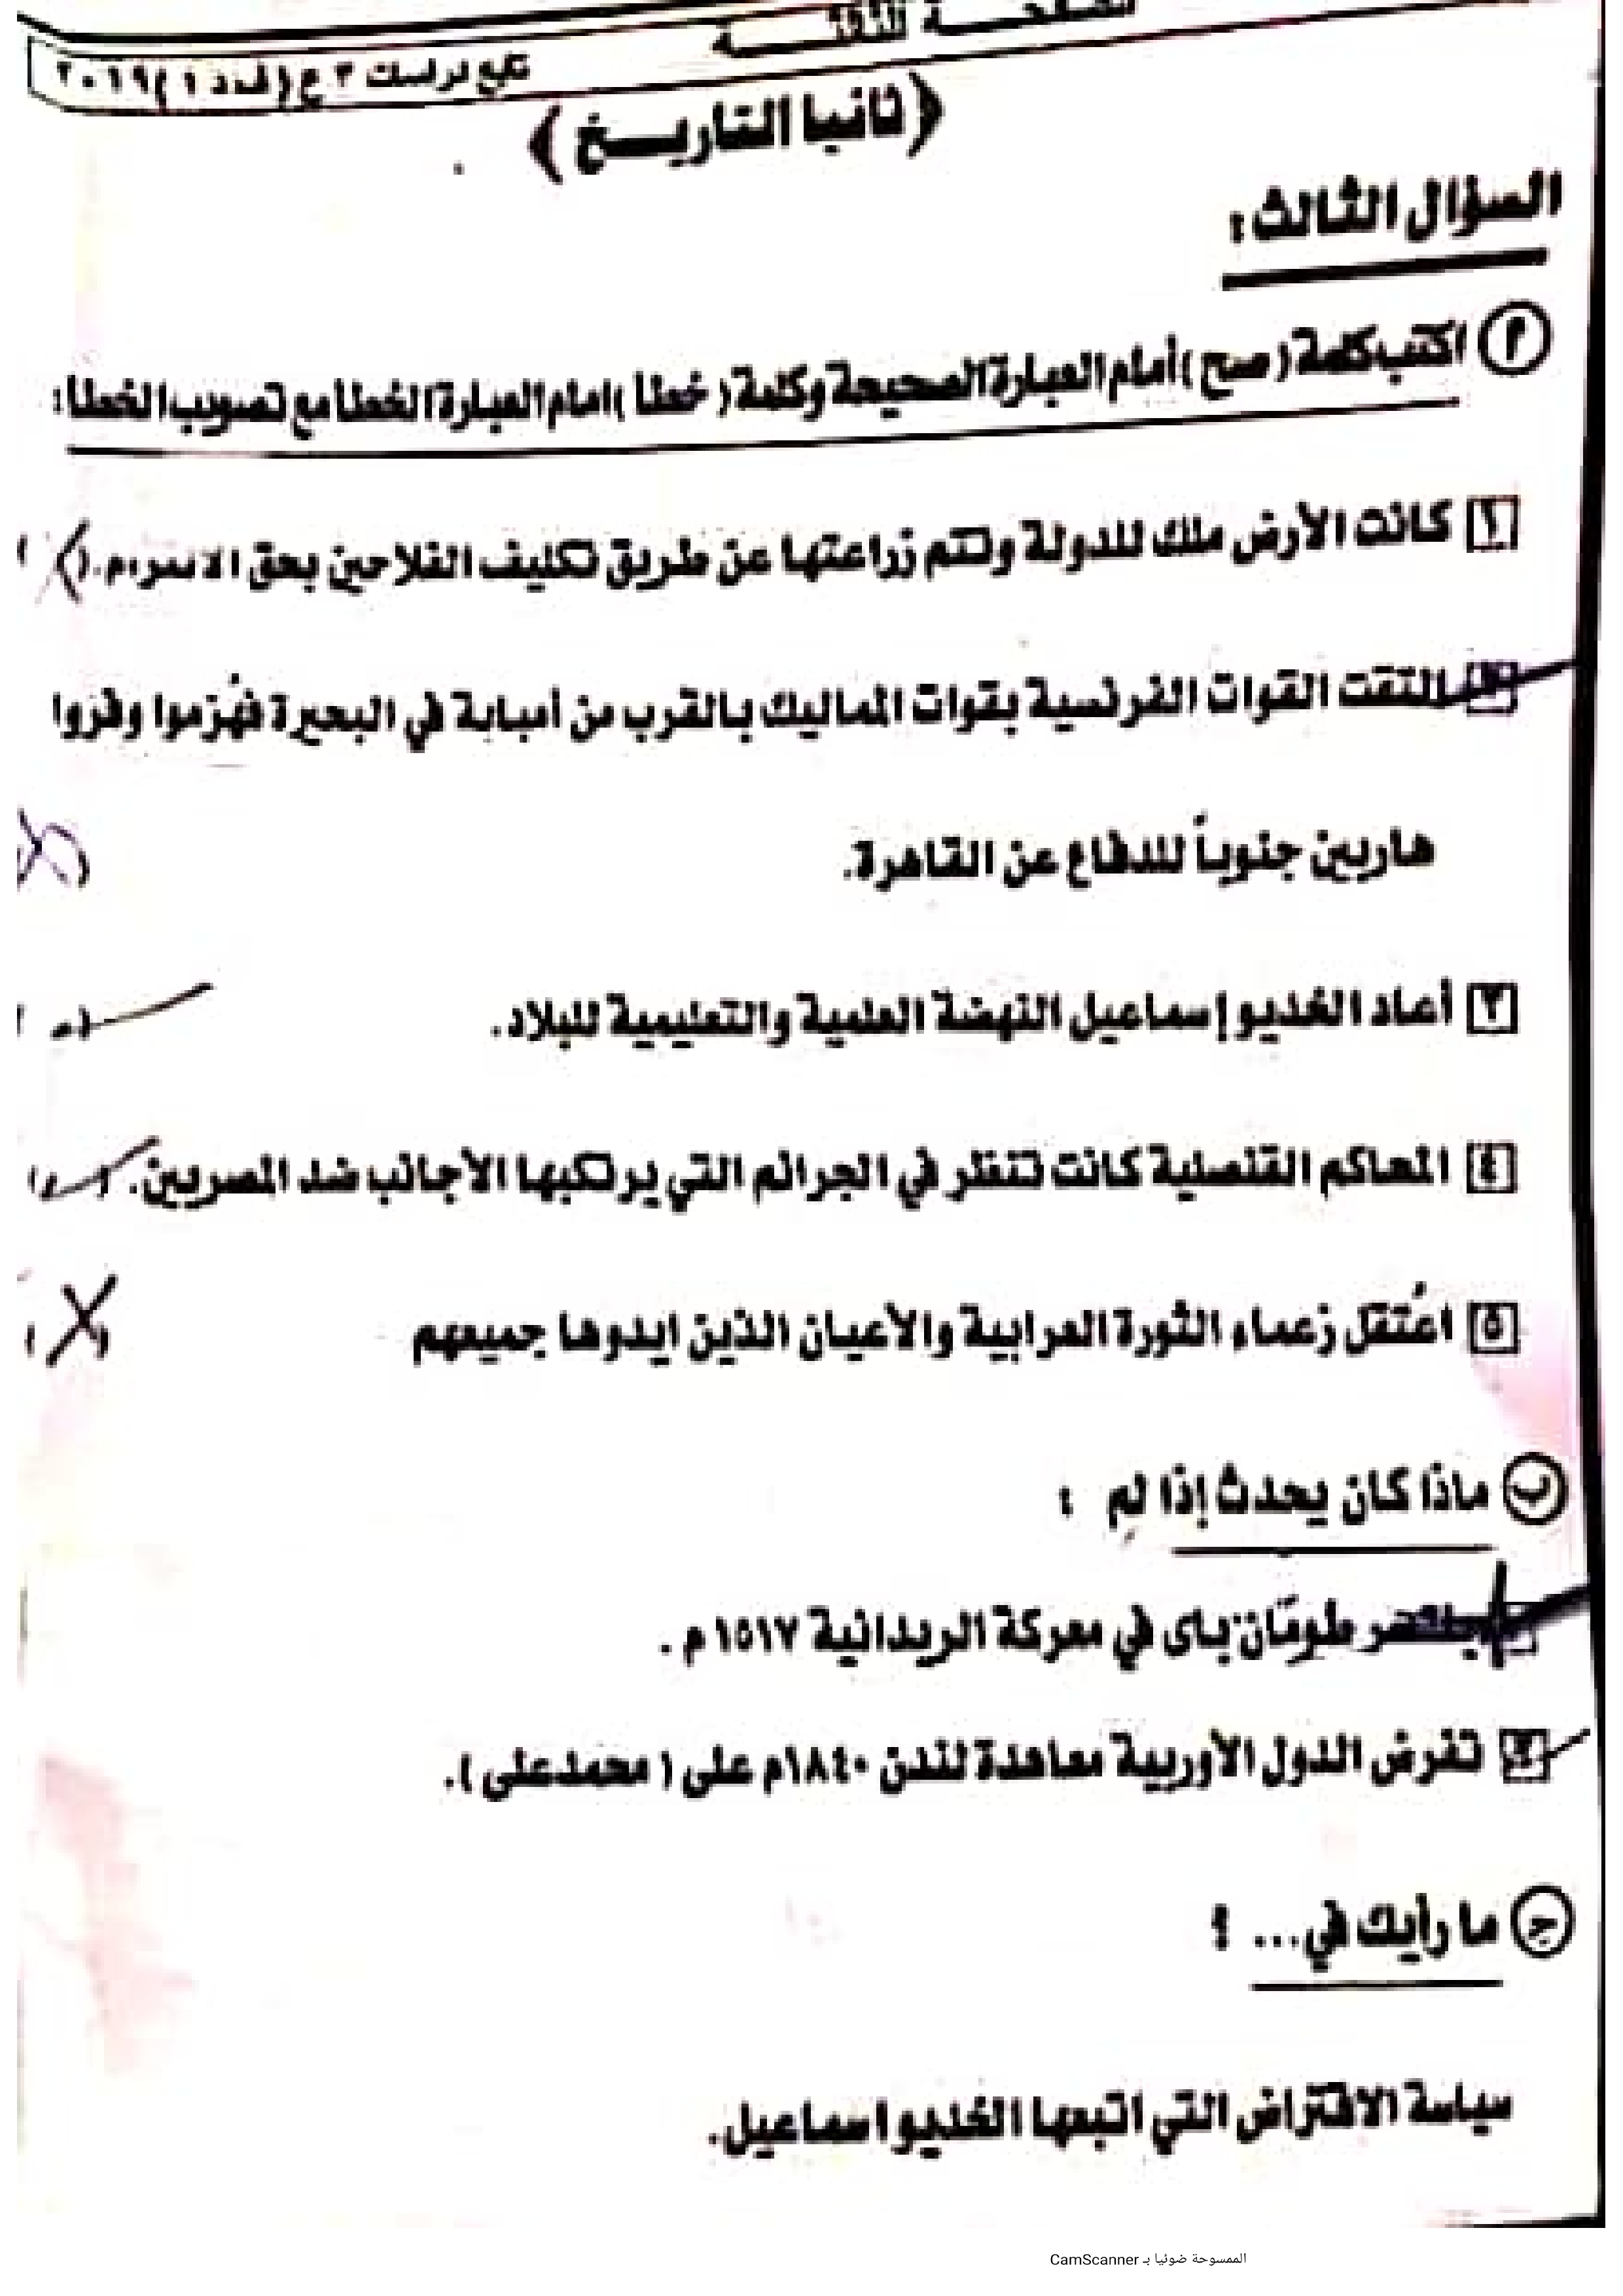 تابع دراسات ٣ ع (ف.د ١) ٢٠١٩
(ثانيا التاريـخ)
السؤال الثالث:
(أ) اكتب كلمة (صح) أمام العبارة الصحيحة وكلمة (خطأ) امام العبارة الخطأ مع تصويب الخطأ:
١ كانت الأرض ملك للدولة وتتم زراعتها عن طريق تكليف الفلاحين بحق الالتزام. ( )
التقت القوات الفرنسية بقوات المماليك بالقرب من أمبابة في البحيرة فهُزموا وفروا
هاربين جنوباً للدفاع عن القاهرة.
٣ أعاد الخديو إسماعيل النهضة العلمية والتعليمية للبلاد.
٤ المحاكم القنصلية كانت تنظر في الجرائم التي يرتكبها الأجانب ضد المصريين. ( )
٥ اعُتقل زعماء الثورة العرابية والأعيان الذين ايدوها جميعهم
(ب) ماذا كان يحدث إذا لم :
طومان باى في معركة الريدانية ١٥١٧م .
٢ تفرض الدول الأوربية معاهدة لندن ١٨٤٠م على ( محمد على ).
(ج) ما رأيك في... ؟
سياسة الاقتراض التي اتبعها الخديو اسماعيل.
الممسوحة ضوئيا بـ CamScanner